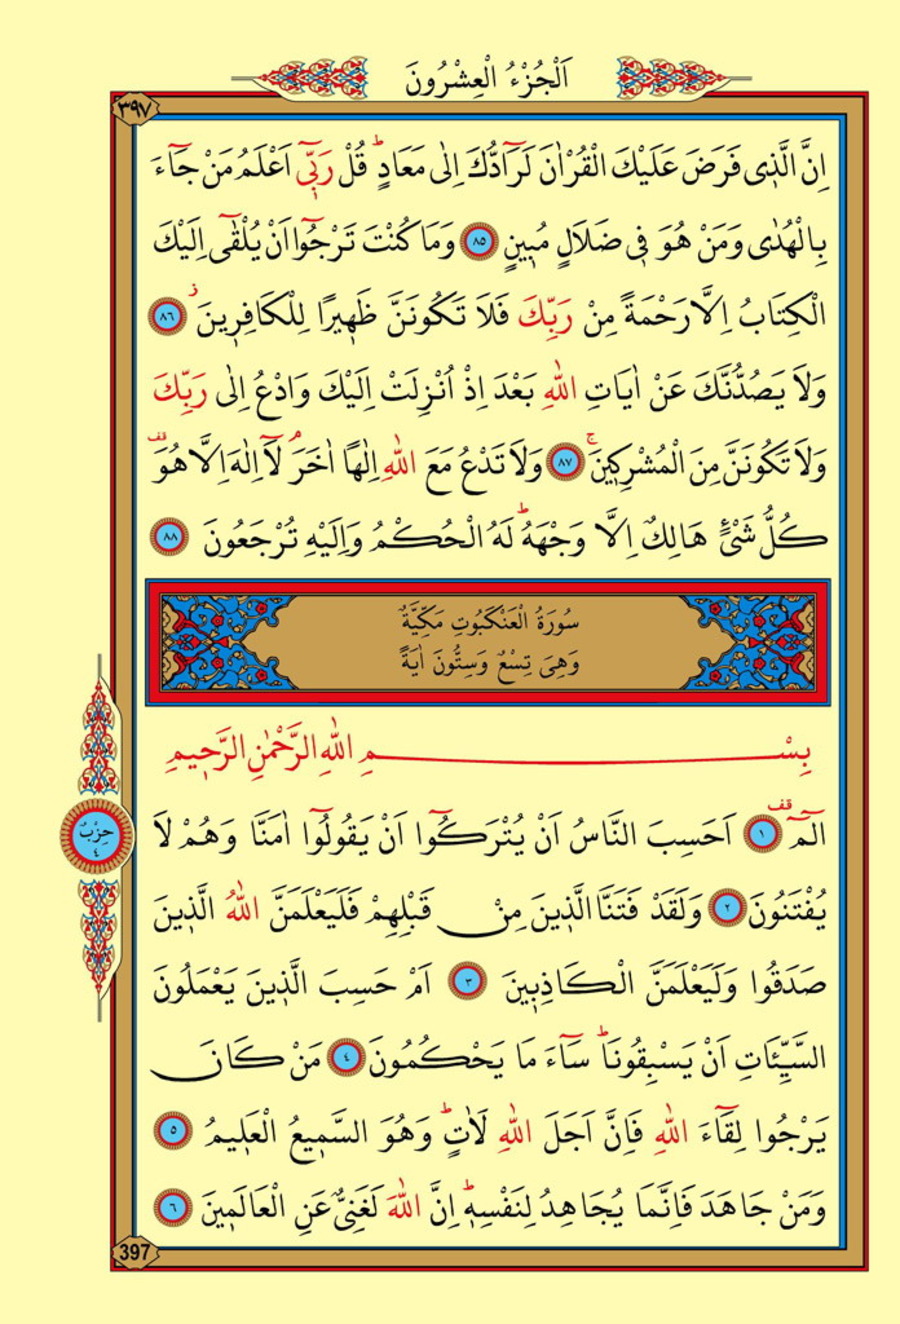 اَلْجُزْءُ الْعِشْرُونَ
٣٩٧
اِنَّ الَّذ۪ي فَرَضَ عَلَيْكَ الْقُرْاٰنَ لَرَٓادُّكَ اِلٰى مَعَادٍۜ قُلْ رَبّ۪ٓي اَعْلَمُ مَنْ جَٓاءَ
بِالْهُدٰى وَمَنْ هُوَ ف۪ي ضَلَالٍ مُب۪ينٍ ﴿٨٥﴾ وَمَا كُنْتَ تَرْجُٓوا اَنْ يُلْقٰٓى اِلَيْكَ
الْكِتَابُ اِلَّا رَحْمَةً مِنْ رَبِّكَ فَلَا تَكُونَنَّ ظَه۪يرًا لِلْكَافِر۪ينَۘ ﴿٨٦﴾
وَلَا يَصُدُّنَّكَ عَنْ اٰيَاتِ اللّٰهِ بَعْدَ اِذْ اُنْزِلَتْ اِلَيْكَ وَادْعُ اِلٰى رَبِّكَ
وَلَا تَكُونَنَّ مِنَ الْمُشْرِك۪ينَۚ ﴿٨٧﴾ وَلَا تَدْعُ مَعَ اللّٰهِ اِلٰهًا اٰخَرَۢ لَٓا اِلٰهَ اِلَّا هُوَ۠
كُلُّ شَيْءٍ هَالِكٌ اِلَّا وَجْهَهُۜ لَهُ الْحُكْمُ وَاِلَيْهِ تُرْجَعُونَ ﴿٨٨﴾
سُورَةُ الْعَنْكَبُوتِ مَكِّيَّةٌ
وَهِيَ تِسْعٌ وَسِتُّونَ اٰيَةً
بِسْمِ اللّٰهِ الرَّحْمٰنِ الرَّح۪يمِ
الٓمٓ ﴿١﴾ اَحَسِبَ النَّاسُ اَنْ يُتْرَكُٓوا اَنْ يَقُولُٓوا اٰمَنَّا وَهُمْ لَا
يُفْتَنُونَ ﴿٢﴾ وَلَقَدْ فَتَنَّا الَّذ۪ينَ مِنْ قَبْلِهِمْ فَلَيَعْلَمَنَّ اللّٰهُ الَّذ۪ينَ
صَدَقُوا وَلَيَعْلَمَنَّ الْكَاذِب۪ينَ ﴿٣﴾ اَمْ حَسِبَ الَّذ۪ينَ يَعْمَلُونَ
السَّيِّـَٔاتِ اَنْ يَسْبِقُونَاۜ سَٓاءَ مَا يَحْكُمُونَ ﴿٤﴾ مَنْ كَانَ
يَرْجُوا لِقَٓاءَ اللّٰهِ فَاِنَّ اَجَلَ اللّٰهِ لَاٰتٍۜ وَهُوَ السَّم۪يعُ الْعَل۪يمُ ﴿٥﴾
وَمَنْ جَاهَدَ فَاِنَّمَا يُجَاهِدُ لِنَفْسِه۪ۜ اِنَّ اللّٰهَ لَغَنِيٌّ عَنِ الْعَالَم۪ينَ ﴿٦﴾
حِزْبٌ
٤
397